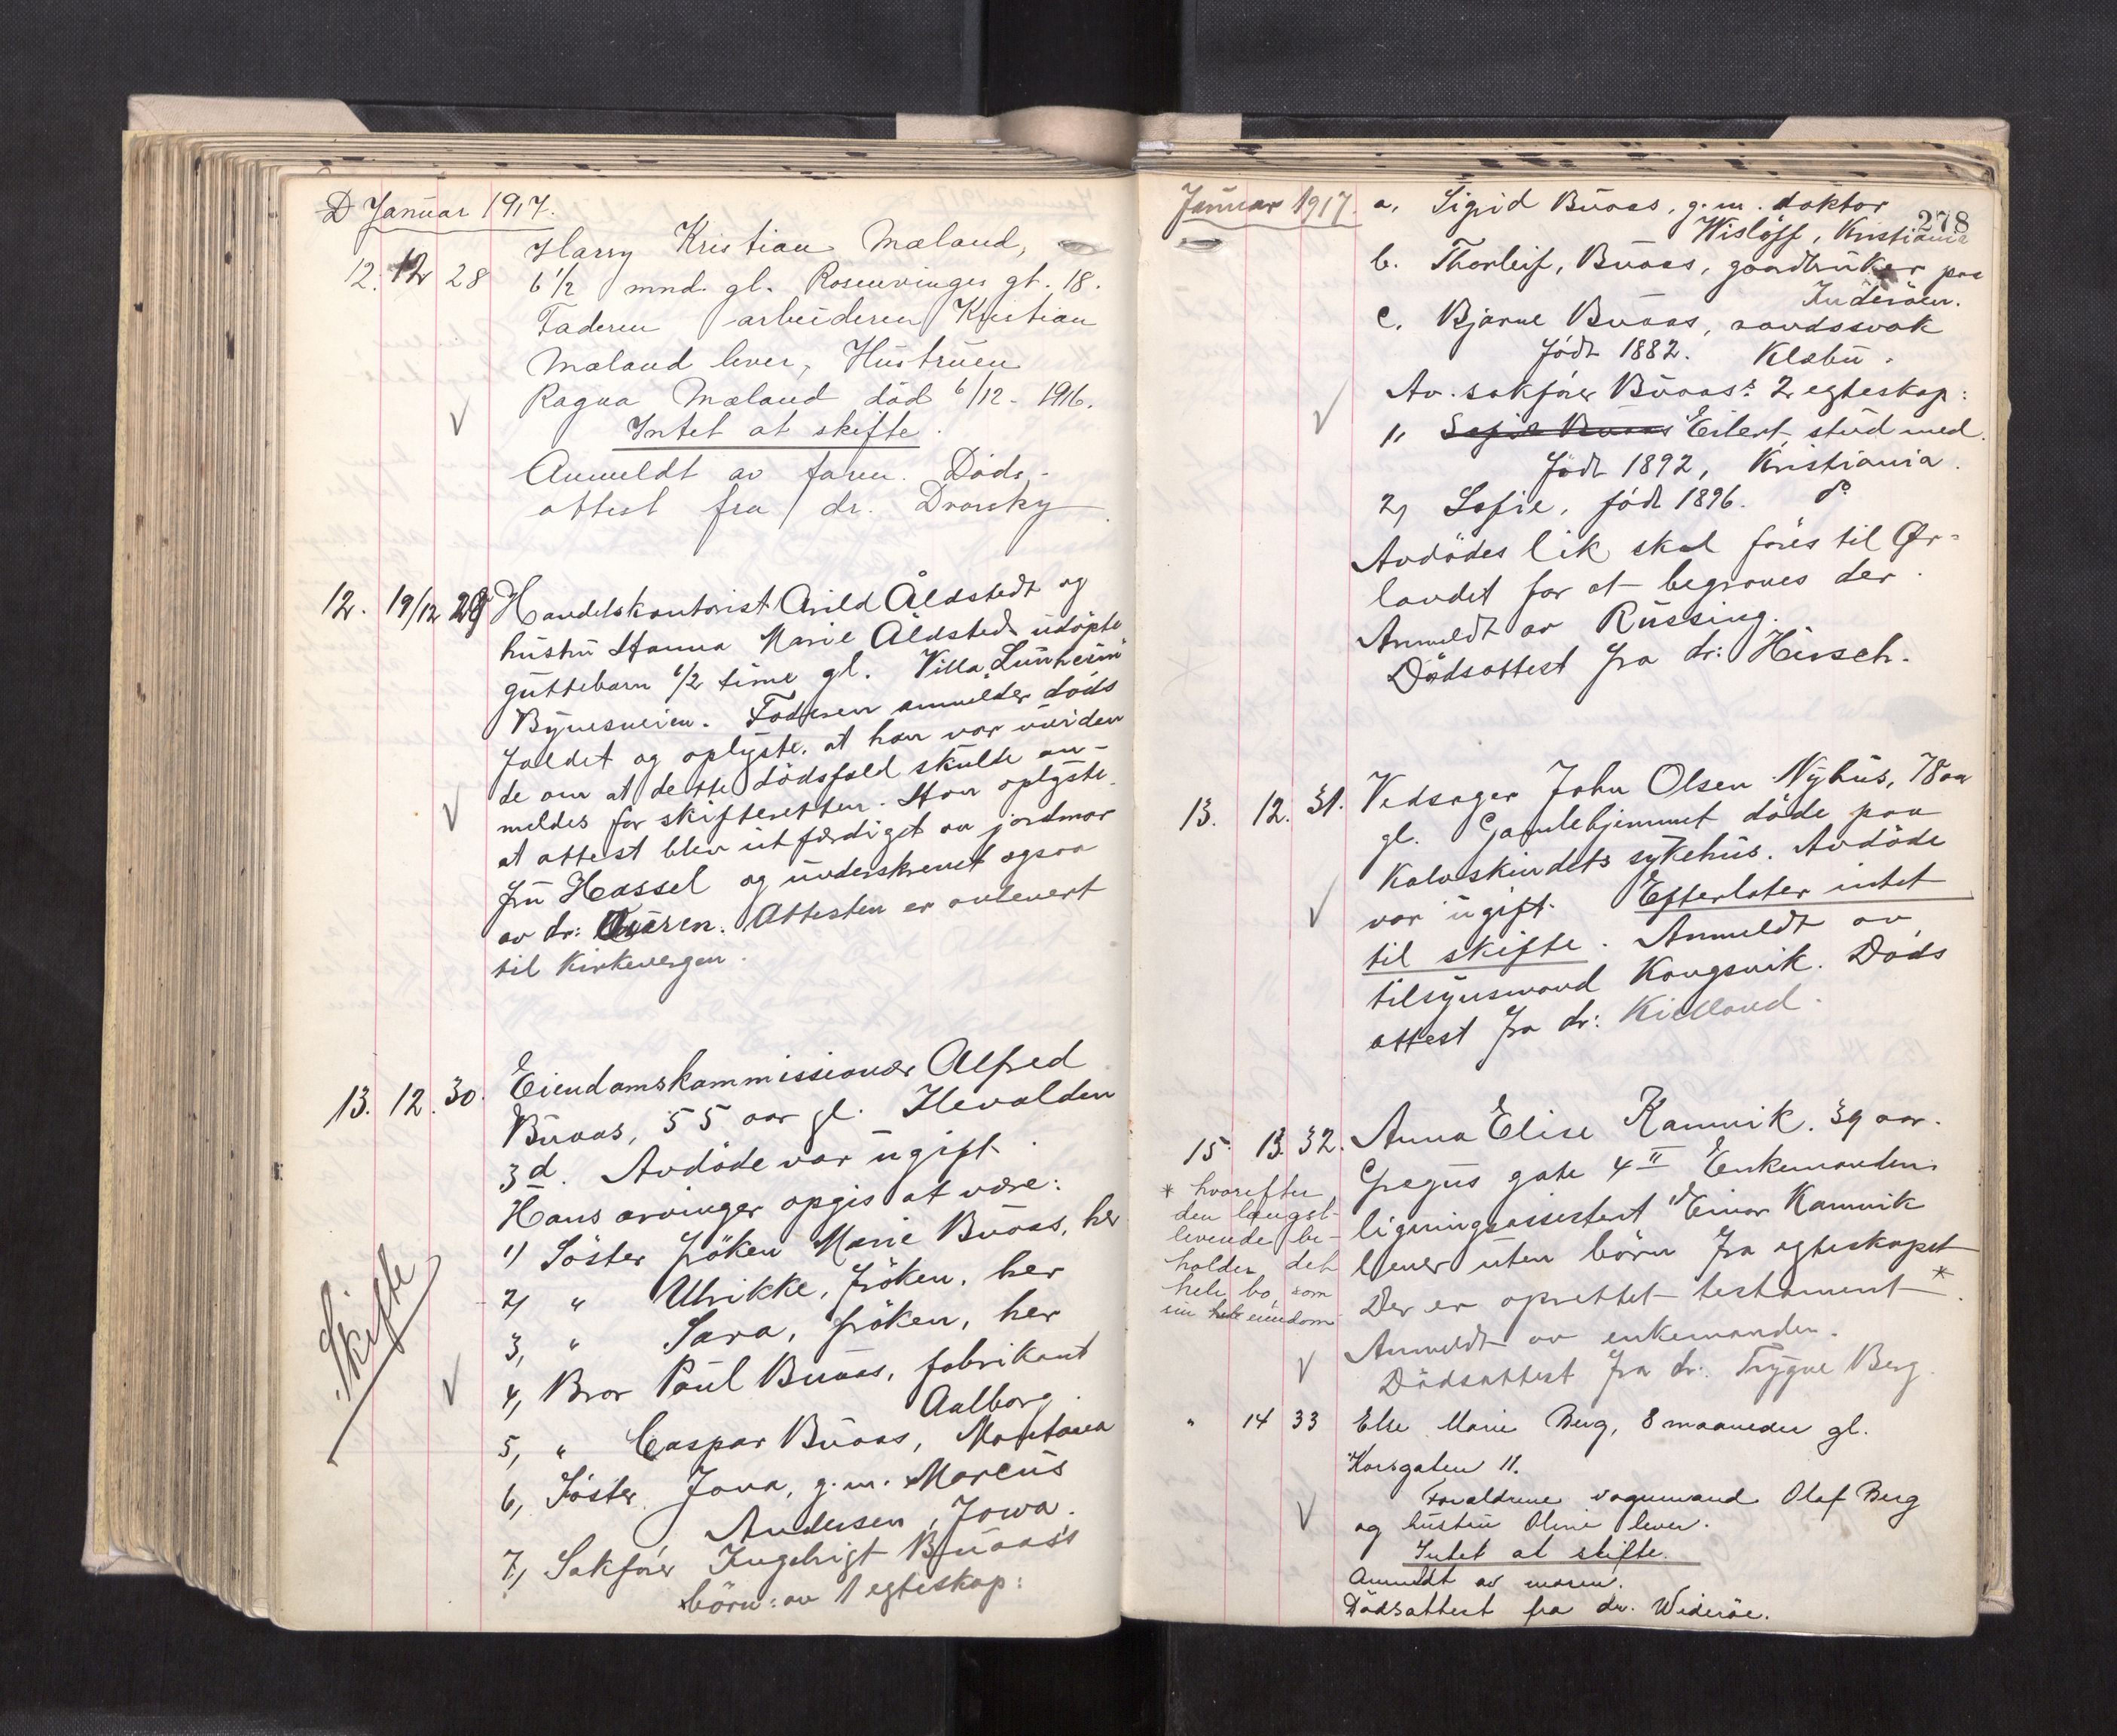 D Januar 1917.
12. 12 28 Harry Kristian Mæland,
6 1/2 mnd. gl. Rosenvinges gt. 18.
Faderen arbeideren Kristian
Mæland lever, Hustruen
Ragna Mæland död 6/12 - 1916.
Intet at skifte.
Anmeldt av faren. Døds-
attest fra dr.
12. 19/12 29 Handelskontorist Arild Åldstedt og
hustru Hanna Marie Åldstedt udöpte
guttebarn 1/2 time gl. Villa Lunheim
Bynesveien. Faderen anmelder döds
faldet og oplyste, at han var uviden
de om at dette dödsfald skulde an-
meldes for skifteretten. Han oplyste
at attest blev utfærdiget av jordmor
fru Hassel og underskrevet ogsaa
av dr: . Attesten er avlevert
til Kirkevergen.
13. 12. 30. Eiendomskommissionær Alfred
Buaas, 55 aar gl. Ilevolden
3d. Avdöde var ugift.
Hans arvinger opgis at være:
1) Söster fröken Marie Buaas, her
2) " Ulrikke, fröken, her
3, " Sara, fröken, her
4, Bror Paul Buaas, fabrikant
Aalborg.
5, " Caspar Buaas, Montana
6, Söster Jova, g.m. Marcus
Andersen, Jowa.
7, Sakförer Ingebrigt Buaas's
börn: av 1 egteskap:
Skifte
Januar 1917.
278
a, Sigrid Buaas, g.m. doktor
Wislöff, Kristiania
b. Thorleif, Buaas, gaardbruker paa
Inderöen.
c. Bjarne Buaas, aandssvak
födt 1882. Klæbu.
Av. sakförer Buaas's 2 egteskap:
1, Sofie Buaas Eilert, stud med.
födt 1892, Kristiania.
2, Sofie, födt 1896. do
Avdödes lik skal föres til Ør-
landet for at begraves der.
Anmeldt av Russing.
Dödsattest fra dr: Hirsch.
13. 12. 31. Vedsager John Olsen Nyhus, 78 aar
gl. Gamlehjemmet döde paa
Kalvskindets sykehus. Avdöde
var ugift. Efterlater intet
til skifte. Anmeldt av
tilsynsmand Kongsvik. Döds
attest fra dr: Kielland.
15. 13. 32. Anna Elise Ramvik. 39 aar.
gate 4 II Enkemanden
ligningsassistent Einar Ramvik
lever uten börn fra egteskapet
Der er oprettet testament *.
* hvorefter
den længst-
levende be-
holder det
hele bo som
sin hele eiendom
Anmeldt av enkemanden.
Dödsattest fra dr: Trygve Berg.
" 14 33 Else Marie Berg, 8 maaneder gl.
Korsgaten 11.
Forældrene vognmand Olaf Berg
og hustru Oline lever.
Intet at skifte.
Anmeldt av moren.
Dödsattest fra dr. Wideröe.